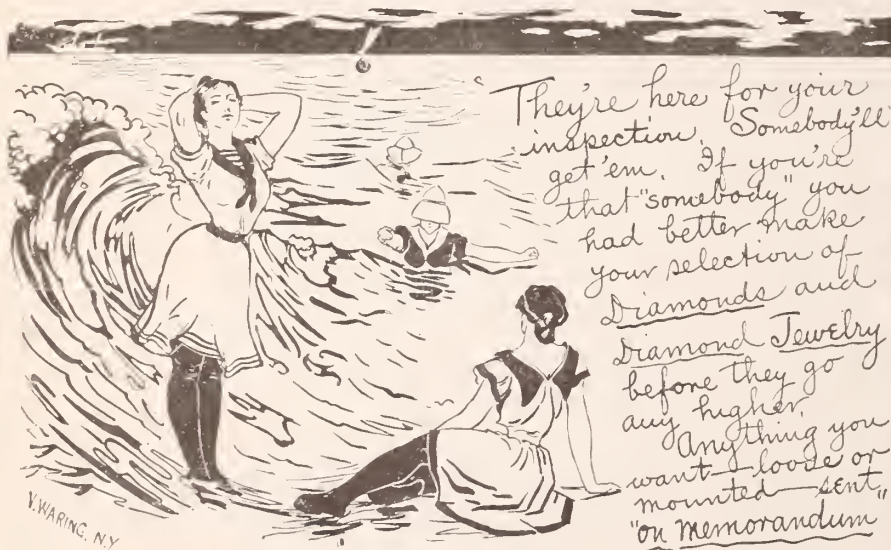 They're here for your
inspection. Somebody'll
get 'em. If you're
that "somebody" you
had better make
your selection of
Diamonds and
Diamond Jewelry
before they go
any higher.
Anything you
want—loose or
mounted—sent,
"on memorandum"
V. WARING. N.Y